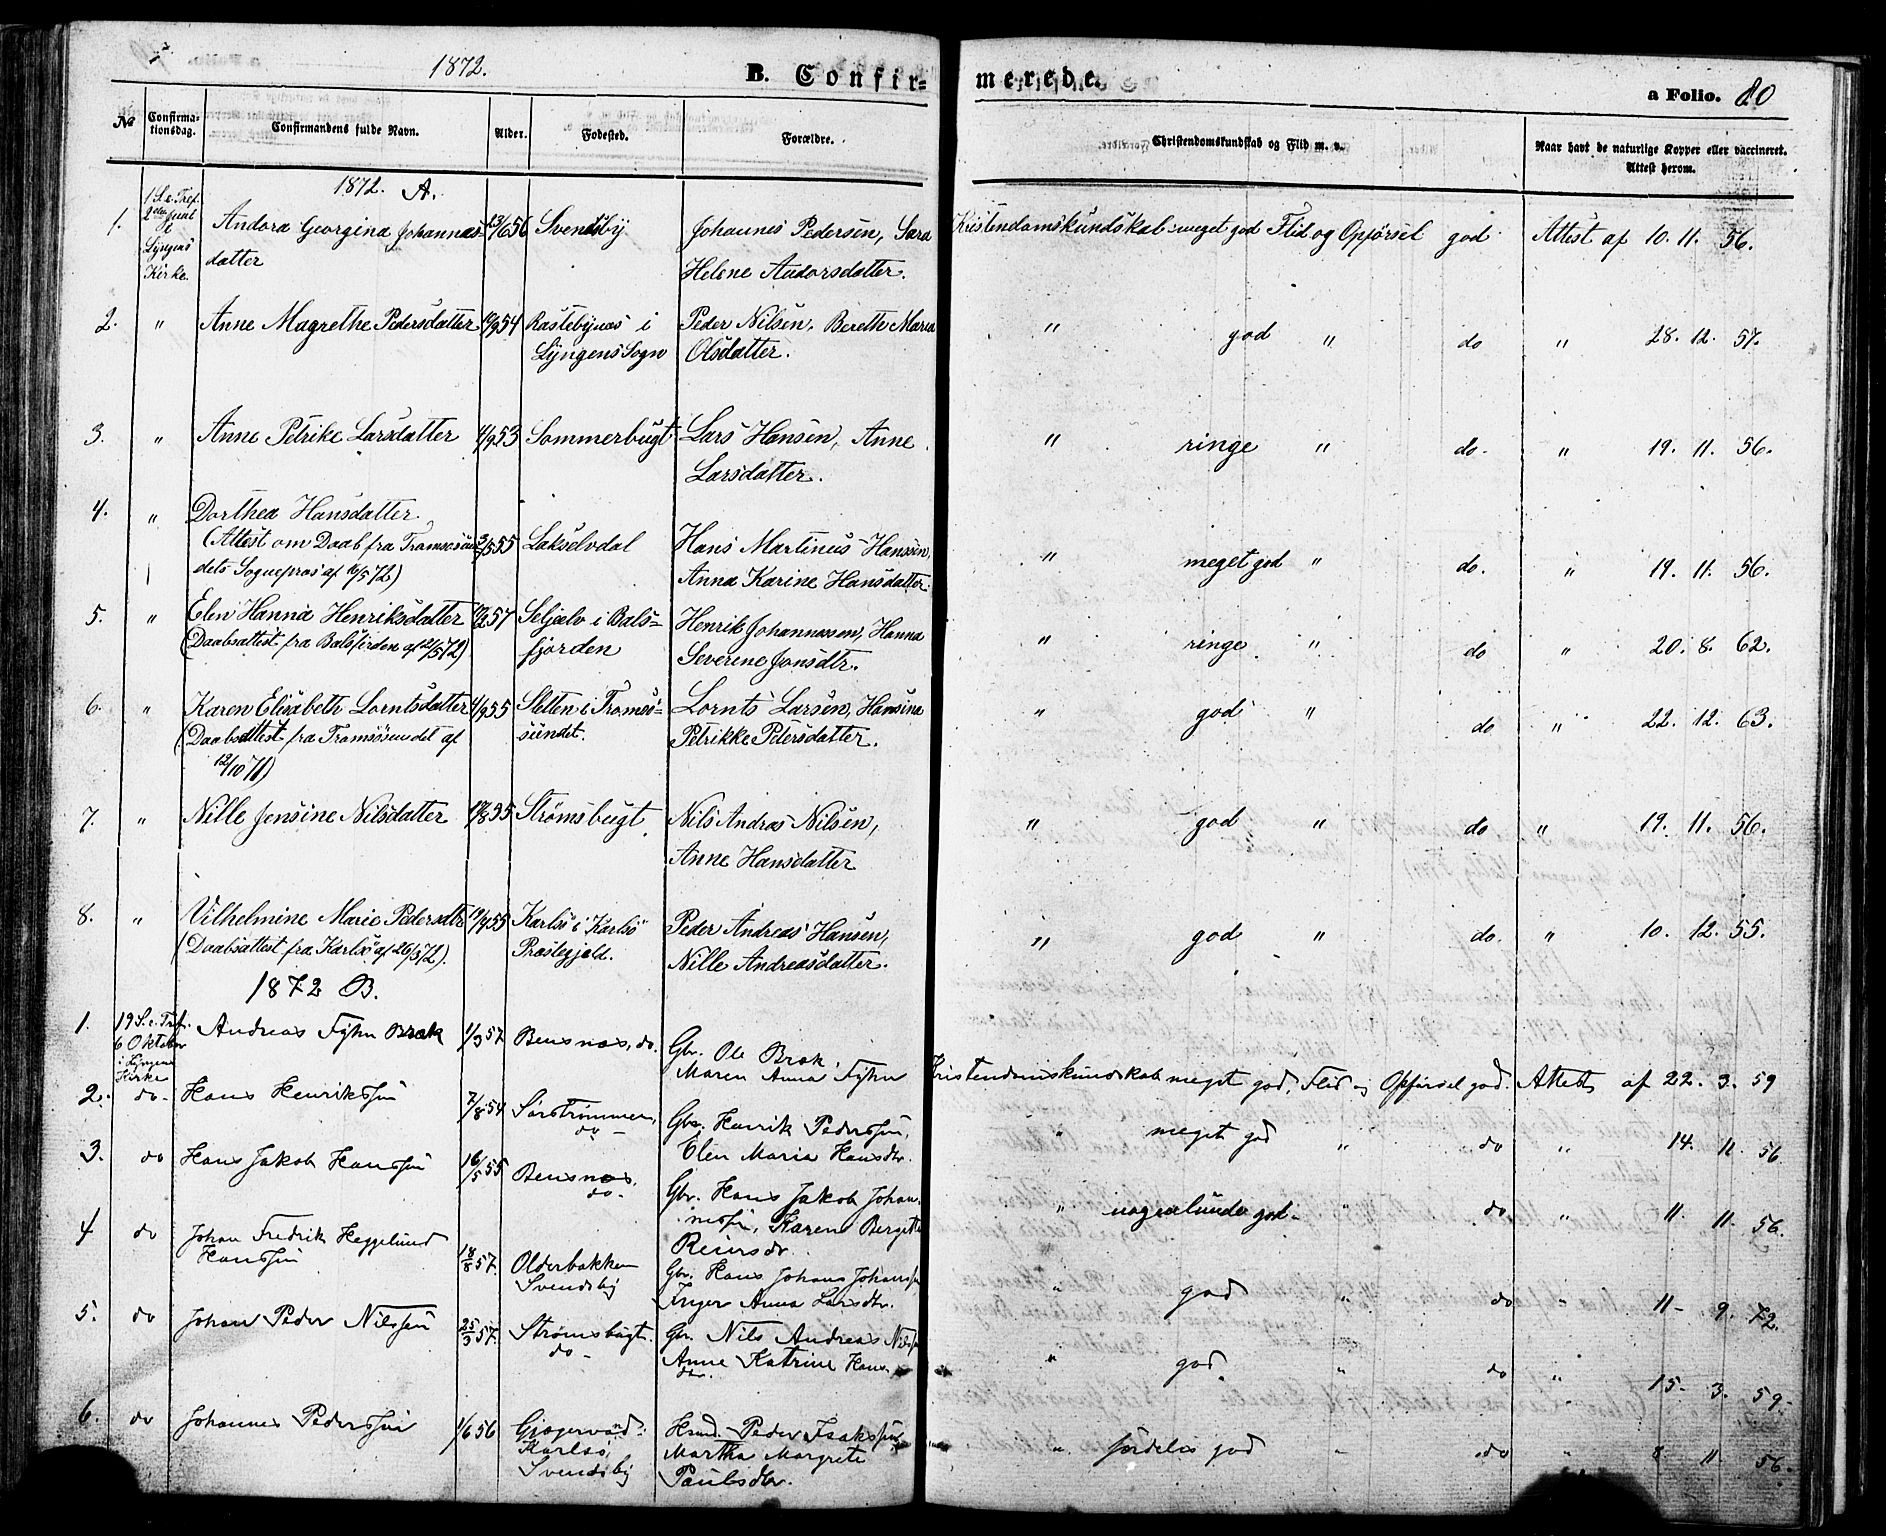 1872.
B. Confir-
merede.
a Folio. 80
No
Confirma-
tionsdag.
Confirmandens fulde Navn.
Alder.
Fødested.
Forældre.
Christendomskundskab og Flid m. v.
Naar havt de naturlige Kopper eller vaccineret.
Attest herom.
1872. A.
1. 1 S. e. Tref.
2den Juni
i
Lyngens
Kirke.
Andora Georgina Johannes-
datter
13/6 56 Svendsby
Johannes Pedersen, Sara
Helene Andorsdatter.
Kristendomskundskab meget god Flid og Opførsel god
Attest af 10. 11. 56.
2. " Anne Magrethe Pedersdatter
54 Rastebynæs i
Lyngens Sogn
Peder Nilsen, Berethe Maria
Olsdatter.
" god " do " 28. 12. 57.
3. " Anne Petrike Larsdatter
4/9 53 Sommerbugt
Lars Hansen, Anne
Larsdatter.
" ringe " do. " 19. 11. 56.
4. " Dorthea Hansdatter.
(Attest om Daab fra Tromsøsun-
dets Sognepræs af 16/5 72)
55 Lakselvdal
Hans Martinus Hanssen,
Anna Karine Hansdatter.
" meget god " do. " 19. 11. 56.
5. " Elen Hanna Henriksdatter
(Daabsattest fra Balsfjorden af 21/5 72)
57 Seljelv i Bals-
fjorden
Henrik Johannessen, Hanna
Severene Jonsdtr.
" ringe " do " 20. 8. 62.
6. " Karen Elisabeth Lorntsdatter
(Daabsattest fra Tromsøsundet af
12/10 71)
4/9 55 Sletten i Tromsø-
sundet.
Lornts Larsen, Hansina
Petrikke Petersdatter.
" god " do " 22. 12. 63.
7. " Nille Jensine Nilsdatter
55 Strømsbugt
Nils Andreas Nilsen,
Anne Hansdatter
" god " do " 19. 11. 56.
8. " Vilhelmine Marie Pedersdtr
(Daabsattest fra Karlsø af 26/3 72).
55 Karlsø i Karlsø
Præstegjeld.
Peder Andreas Hansen,
Nille Andreasdatter.
" god " do. " 10. 12. 55.
1872 B.
1. 19 S. e. Tref.
6 Oktober
i Lyngens
Kirke
Andreas Fyhn Bræk
1/3 57 Bensnæs, do.
Gbr. Ole Bræk,
Maren Anna Fyhn
Kristendomskundskab meget god, Flid og Opførsel god. Attest af 22. 3. 59
2. do. Hans Henrikssen
7/8 54 Sørstrømmen,
do
Gbr. Henrik Pedersen,
Elen Maria Hansdtr.
" meget god " do " 14. 11. 56
3. do Hans Jakob Hanssen
16/5 55 Bensnæs,
do.
Gbr. Hans Jakob Johan-
nessen, Karen Bergitte
Reiersdtr.
" nogenlunde god " do " 11. 11. 56.
4 do Johan Fredrik Heggelund
Hanssen
18/8 57. Olderbakken
Svendsby
Gbr. Hans Johans Johanssen
Inger Anna Larsdtr.
" god " do " 11. 9. 72.
5. do Johan Peder Nilssen
25/3 57. Strømsbugt.
do
Gbr. Nils Andreas Nilssen
Anne Katrine Hans-
dtr.
" god " do " 15. 3. 59.
6. do Johannes Pederssen
1/6 56 Gjøgervand:
Karlsø,
Svendsby
Hmd. Peder Isakssen
Martha Margrete
Paulsdtr.
" særdeles god " do " 8 11 56.